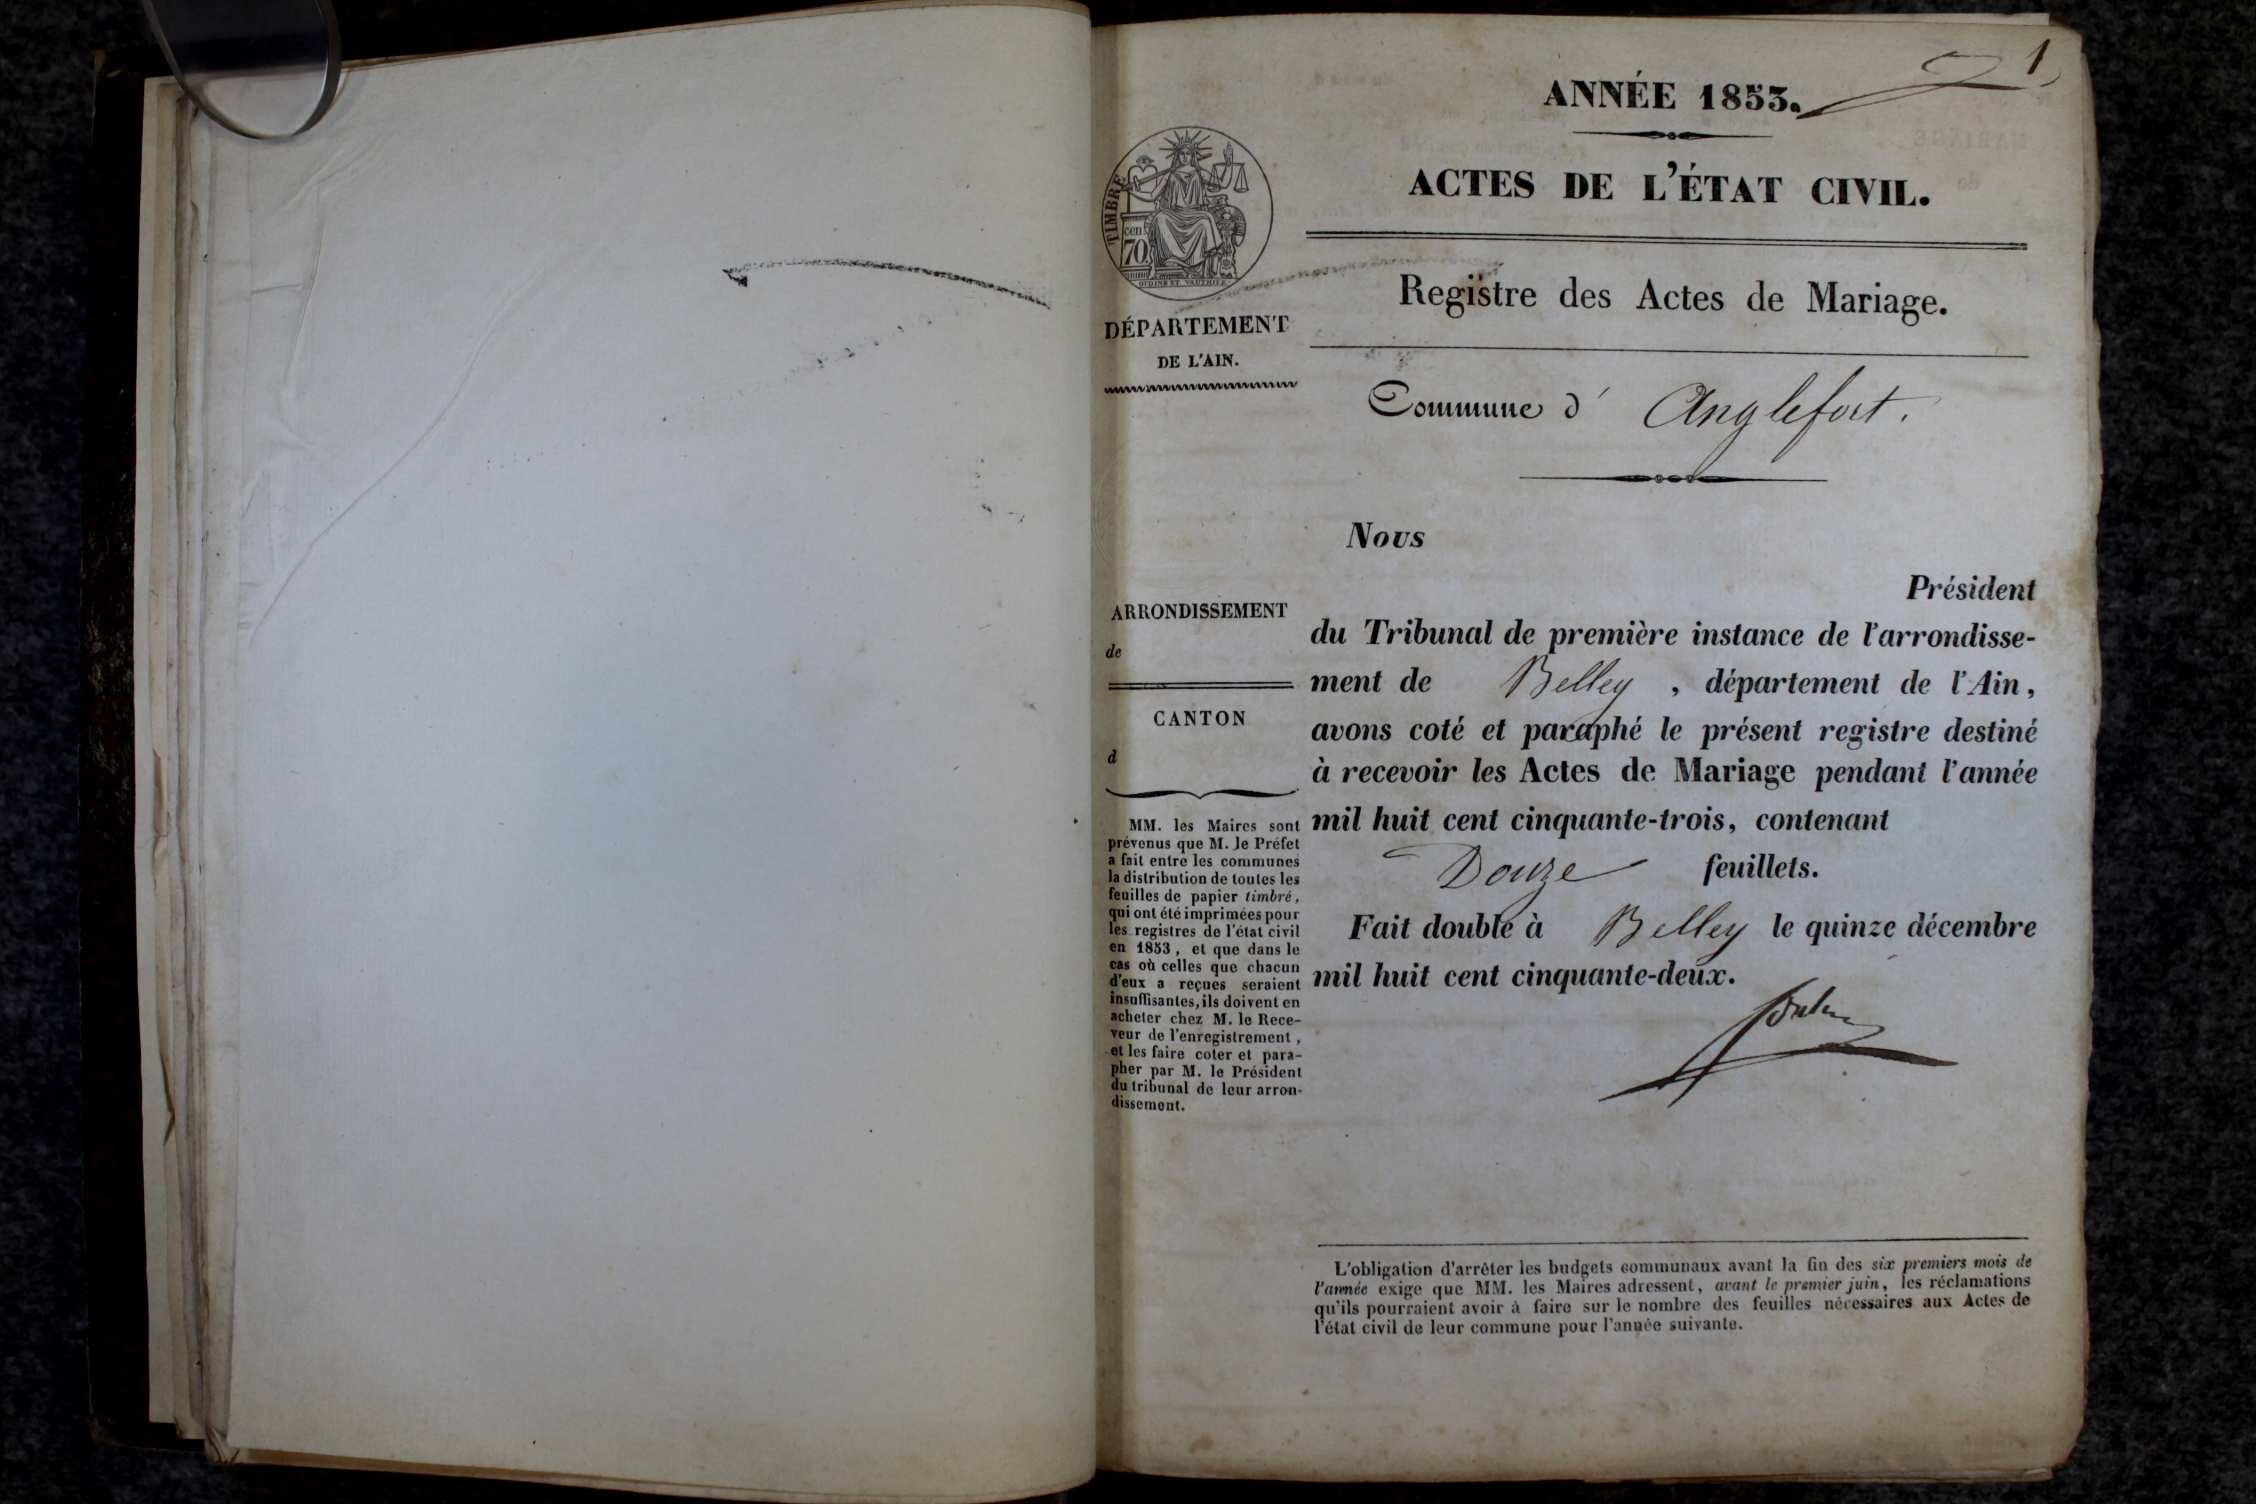 1
ANNÉE 1853.
ACTES DE L'ÉTAT CIVIL.
Registre des Actes de Mariage.
TIMBRE
cen.
70
OUDINÉ ET VAUTHIER
DÉPARTEMENT
DE L'AIN.
Commune d' Anglefort.
Nous
Président
du Tribunal de première instance de l'arrondisse-
ment de Belley, département de l'Ain,
avons coté et paraphé le présent registre destiné
à recevoir les Actes de Mariage pendant l'année
mil huit cent cinquante-trois, contenant
Douze feuillets.
Fait double à Belley le quinze décembre
mil huit cent cinquante-deux.
ARRONDISSEMENT
de
CANTON
d
MM. les Maires sont
prévenus que M. le Préfet
a fait entre les communes
la distribution de toutes les
feuilles de papier timbré,
qui ont été imprimées pour
les registres de l'état civil
en 1853, et que dans le
cas où celles que chacun
d'eux a reçues seraient
insuffisantes, ils doivent en
acheter chez M. le Rece-
veur de l'enregistrement,
et les faire coter et para-
pher par M. le Président
du tribunal de leur arron-
dissement.
L'obligation d'arrêter les budgets communaux avant la fin des six premiers mois de
l'année exige que MM. les Maires adressent, avant le premier juin, les réclamations
qu'ils pourraient avoir à faire sur le nombre des feuilles nécessaires aux Actes de
l'état civil de leur commune pour l'année suivante.